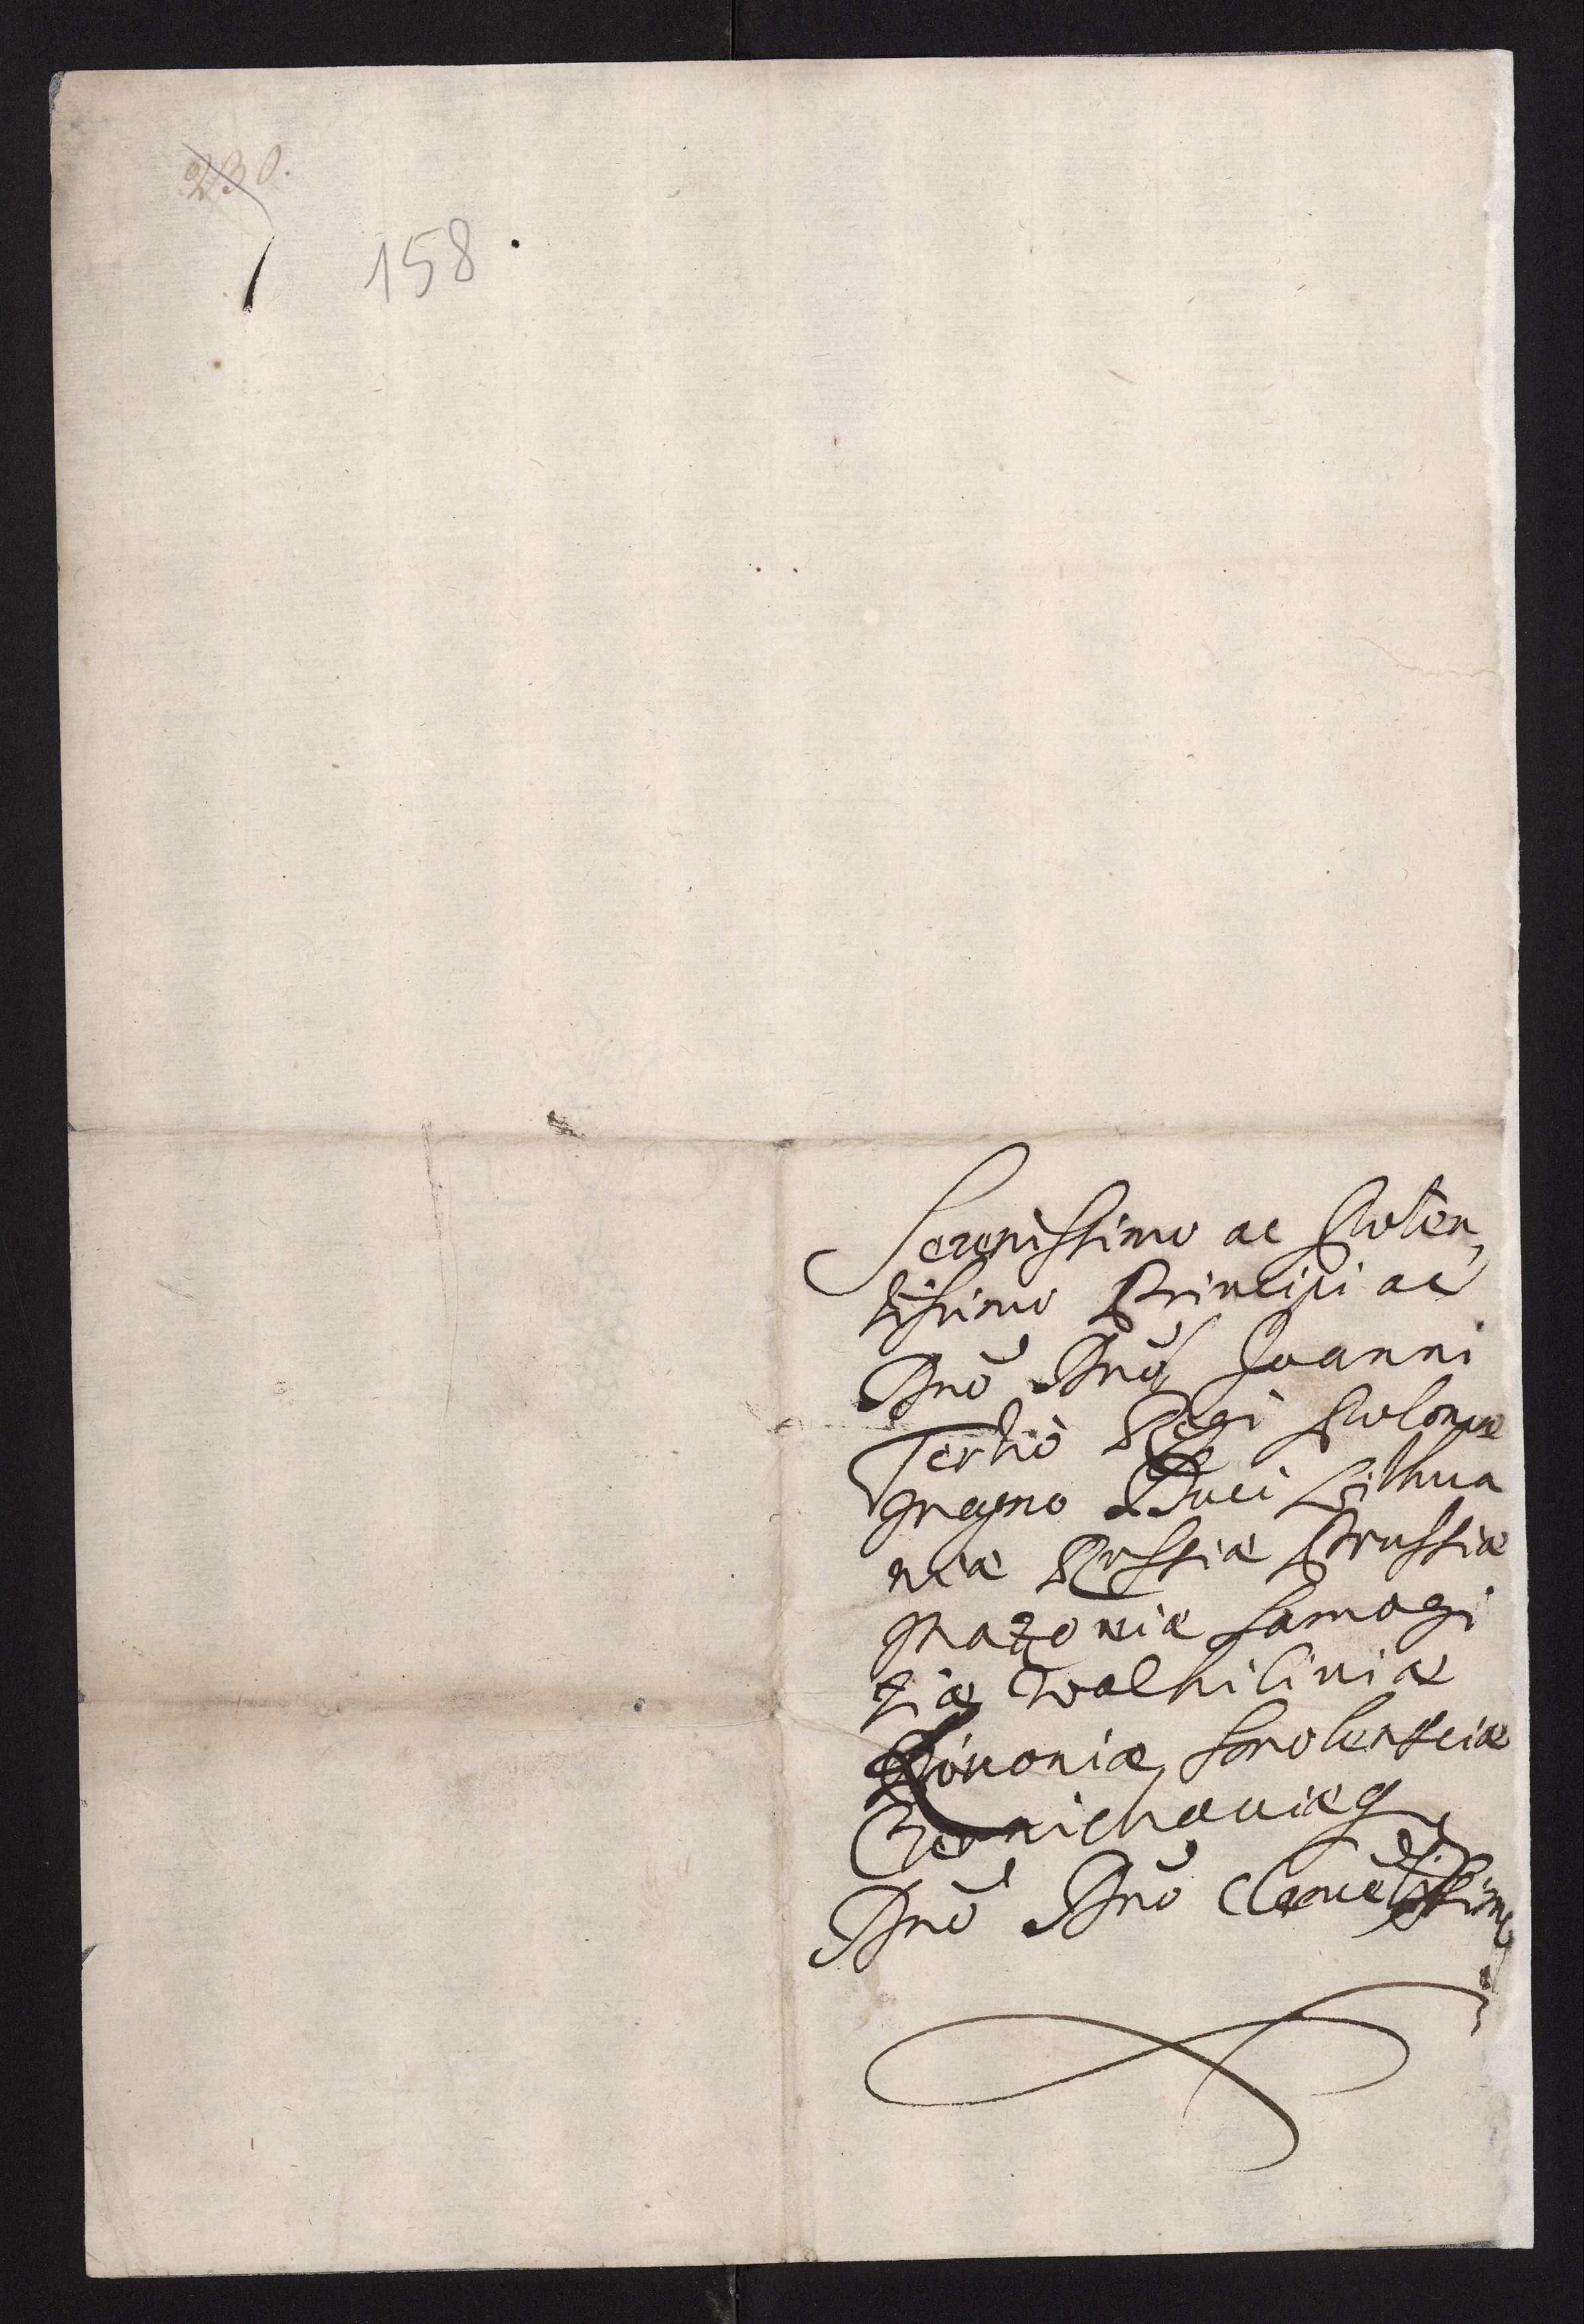 230.
158.
Serenissimo ac Poten,
tissimo Principi ac
Dnō Dnō Joanni
Tertio Regi Poloniæ
Magno Duci Lithua
niæ Russiæ Prussiæ
Mazoviæ Samogi
tiæ Walhiliniæ
Kiuoniæ Smolensciæ
Czernichauiæq
Dnō Dnō Clemētissimo